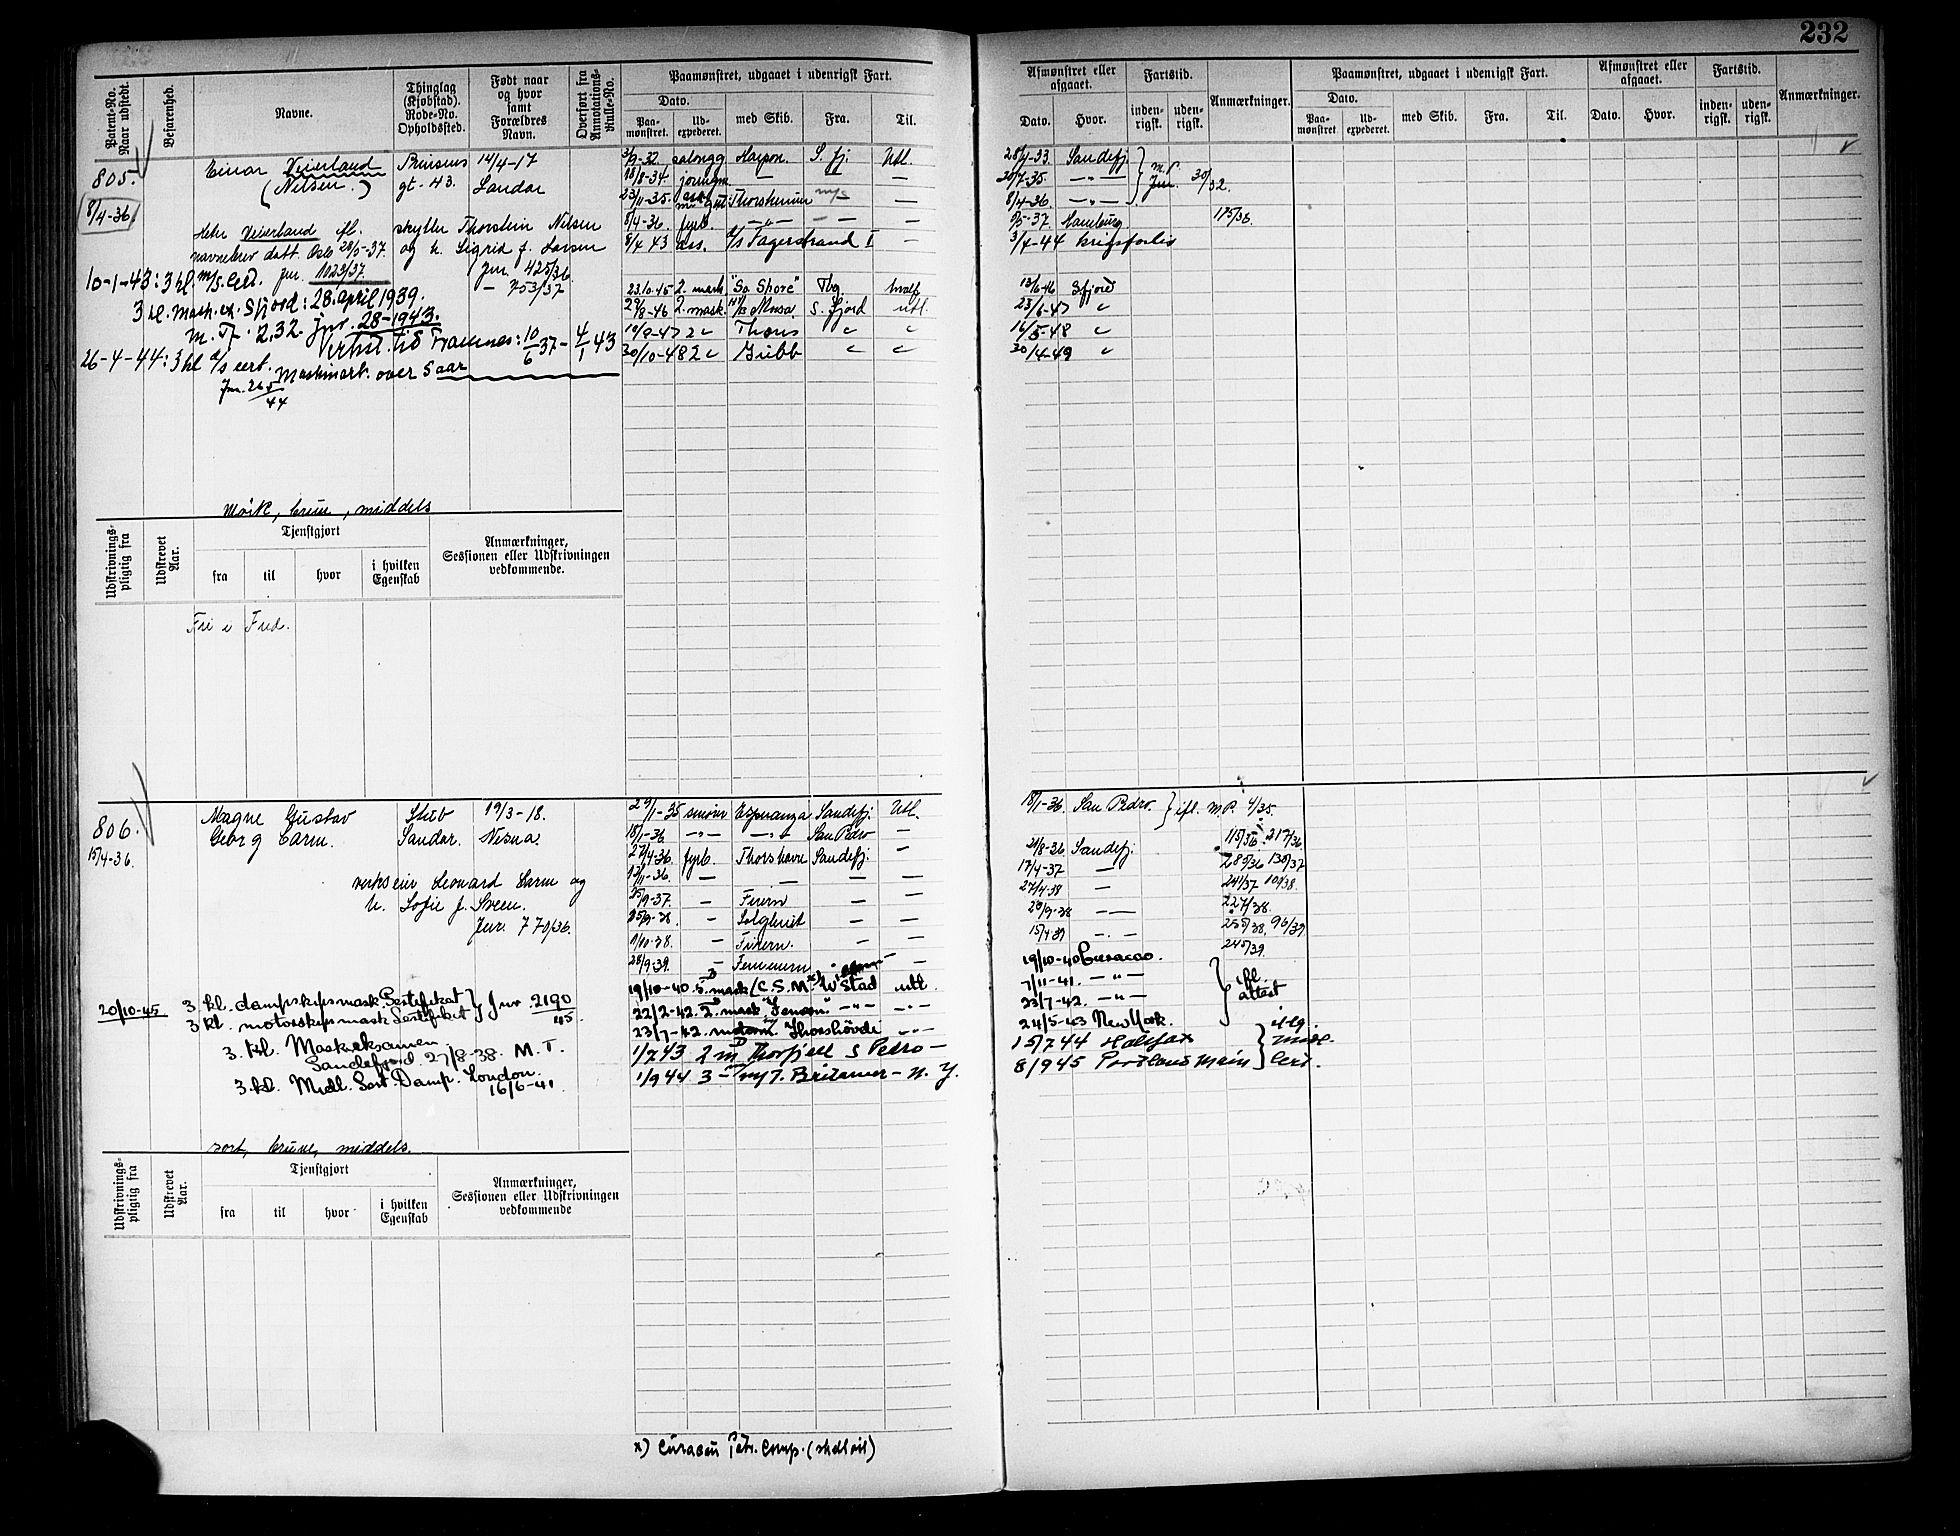 232
Patent-No. Naar udstedt.
Befarenhed.
Navne.
Thinglag (Kjøbstad). Rode-No. Opholdssted.
Født naar og hvor samt Forældres Navn.
Overført fra Annotations-Rulle-No.
Paamønstret, udgaaet i udenrigsk Fart.
Dato.
Paa-mønstret.
Ud-expederet.
med Skib.
Fra.
Til.
Afmønstret eller afgaaet.
Dato.
Hvor.
Fartstid.
inden-rigsk.
uden-rigsk.
Anmærkninger.
Paamønstret, udgaaet i udenrigsk Fart.
Dato.
Paa-mønstret.
Ud-expederet.
med Skib.
Fra.
Til.
Afmønstret eller afgaaet.
Dato.
Hvor.
Fartstid.
inden-rigsk.
uden-rigsk.
Anmærkninger.
805.
8/4-36.
Einar Veierland
(Nilsen.)
Prinsens
gt. 43.
14/4-17
Sandar
Heter Veierland ifl. skyller Thorstein Nilsen
navnebrev datt. Oslo 28/5-37. og h. Sigrid f. Larsen
jnr. 1023/37. Jnr. 425/36
— 753/37
10-1-43: 3 kl. m/s. Cert.
3 kl. Mask. ex. Sfjord: 28. april 1939.
M. T. 2,32. Jnr. 28-1943.
Verkst. tid Framnes: 10/6 37 - 4/1 43
26-4-44: 3 kl d/s cert. Maskinart. over 5 aar
Jnr. 265/44
Mörk, brune, middels
3/9-32. salongg Harpon. S. fj. Utl.
18/8-34. jorungm — — —
23/11-35. Thorshammer —
8/4-36. fyrb. —"— — —
8/4 43 ass. d/s Fagerstrand I —
23.10.45 2. mask "So Shore" Tbg hvalf
29/8-46 2. mask. Mosa S. Fjord utl.
10/9-47 2 " Thoris " "
30/10-48 2 " Gribb " "
28/4-33. Sandefj. } M.P.
20/7-35. —"— } Jnr. 30/32.
8/4-36. —"—
8/5-37. Hamburg 175/38.
3/4-44 krigsforlis
12/6-46 Sfjord
23/6-47 "
16/5-48 "
30/4-49 "
Udskrivnings-pligtig fra
Udskrevet Aar.
Tjenstgjort
fra
til
hvor
i hvilken Egenskab
Anmærkninger, Sessionen eller Udskrivningen vedkommende.
Fri i Fred.
806.
15/4-36.
Magne Gustav
Georg Carm.
Stub
Sandar.
19/3-18.
Nesna.
verkseier Leonard Larm og
h. Sofie f. Sveen.
Jnr. 770/36.
20/10-45 3 kl. dampskipsmask Sertifikat } Jnr 2190/45
3 kl. motorskipsmask Sertifikat }
3. kl. Maskeksamen
Sandefjord 27/8-38. M. T.
3. kl. Midl. Sert. Damp. London.
16/6-41
sort, brune, middels.
29/1-35 smører Esperanza Sandefj. Utl.
18/1-36. —"— —"— San Pedro —
27/4-36. fyrb. Thorshavn Sandefj. —
12/11-36. — — — —
25/9-37. — Finern — —
25/9-38. — Solglimt — —
9/10-38. — Finern. — —
28/9-39. — Femern — —
19/10-40. 3. mask (C.S.M. x) W'stad utl.
22/2-42. 2. mask —"— —"—
23/7-42. Thorshövdi —"—
1/7 43 2 m Thorfjell S Pedro —
1/9 44 3 — m/T. Britamer — N. Y.
18/1-36. San Pedro. } ifl. M.P. 4/35.
115/36. 217/36
21/8-36 Sandefj.
285/36 130/37
17/4-37 —
241/37 101/38.
27/4-38 —
227/38.
28/9-38 —
255/38. 96/39
15/4-39 — . —
245/39.
19/10-40 Curacao.
7/11-41. —"— } ifl.
23/7-42. —"— } attest
24/5-43 New York.
15/7 44 Halifax } iflg
8/9 45 Portland Main } Cert.
Udskrivnings-pligtig fra
Udskrevet Aar.
Tjenstgjort
fra
til
hvor
i hvilken Egenskab
Anmærkninger, Sessionen eller Udskrivningen vedkommende
x) Curacau Petr. Comp. (shell oil)